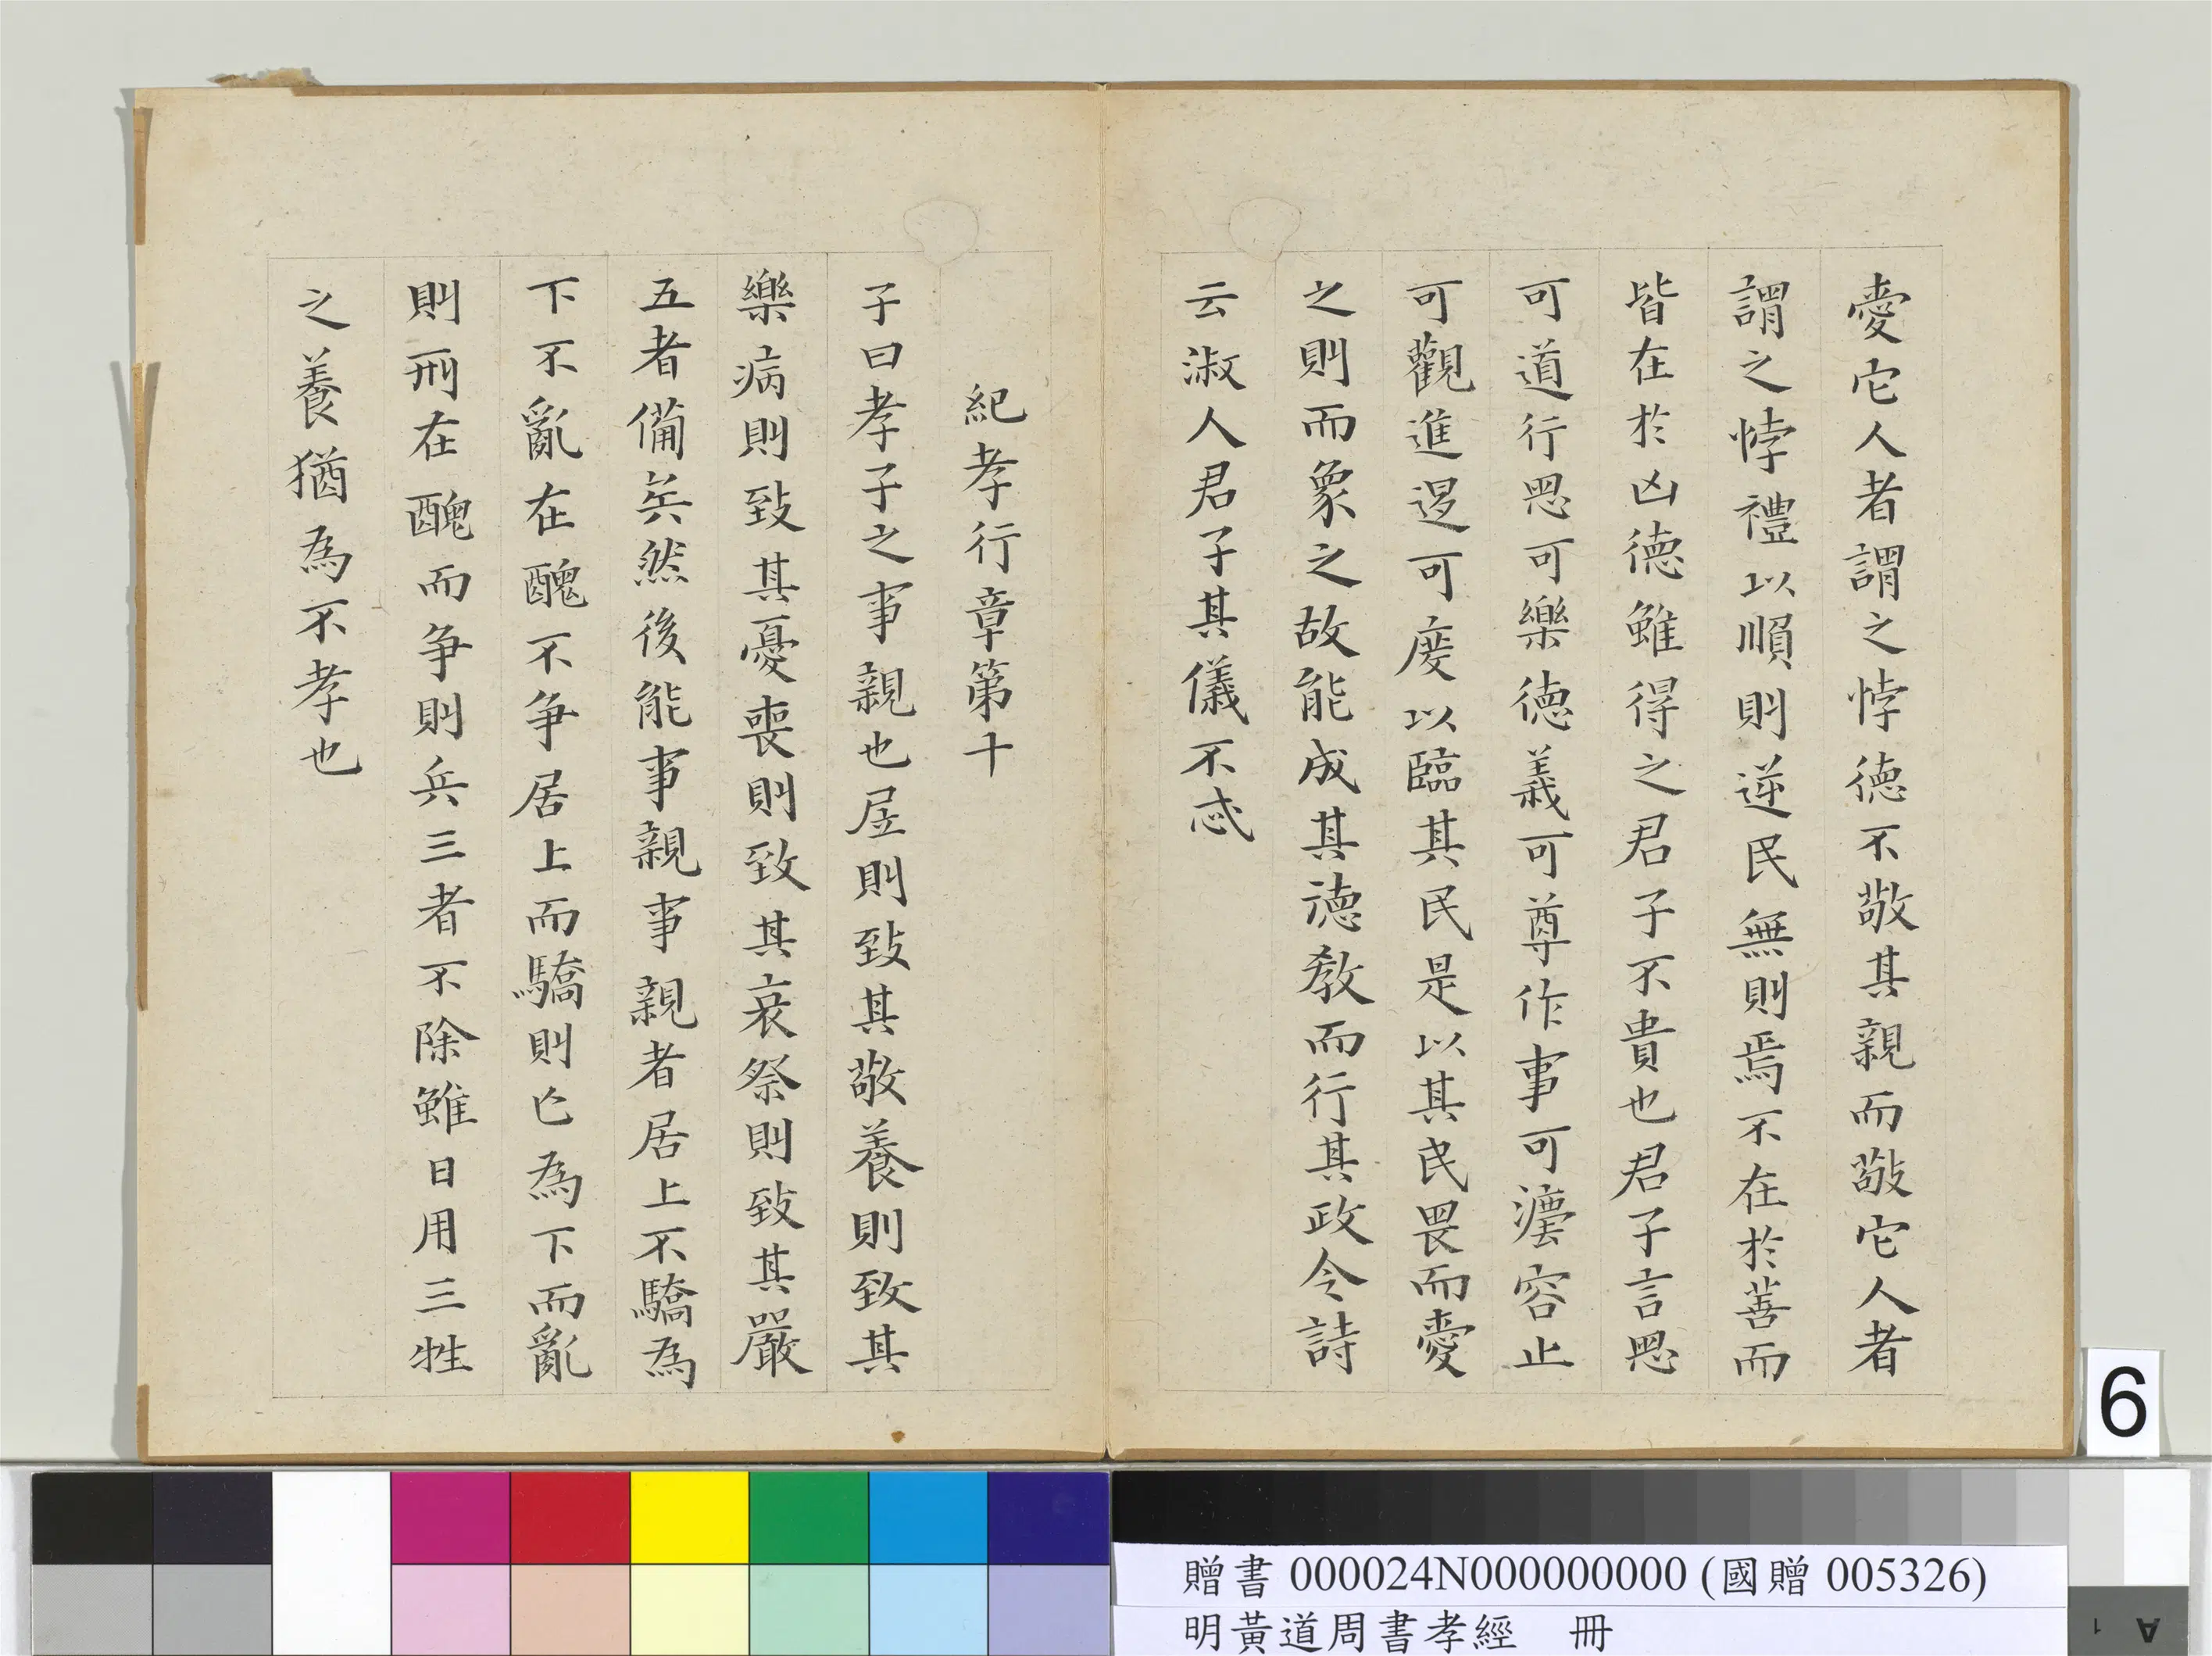 愛它人者謂之悖德不敬其親而敬它人者
謂之悖禮以順則逆民無則焉不在於善而
皆在於凶德雖得之君子不貴也君子言思
可道行思可樂德義可尊作事可灋容止
可觀進退可度以臨其民是以其民畏而愛
之則而象之故能成其德教而行其政令詩
云淑人君子其儀不忒
紀孝行章第十
子曰孝子之事親也居則致其敬養則致其
樂病則致其憂喪則致其哀祭則致其嚴
五者備矣然後能事親事親者居上不驕為
下不亂在醜不爭居上而驕則亡為下而亂
則刑在醜而爭則兵三者不除雖日用三牲
之養猶為不孝也
6
贈書 000024N000000000 (國贈 005326)
明黃道周書孝經 冊
A 1